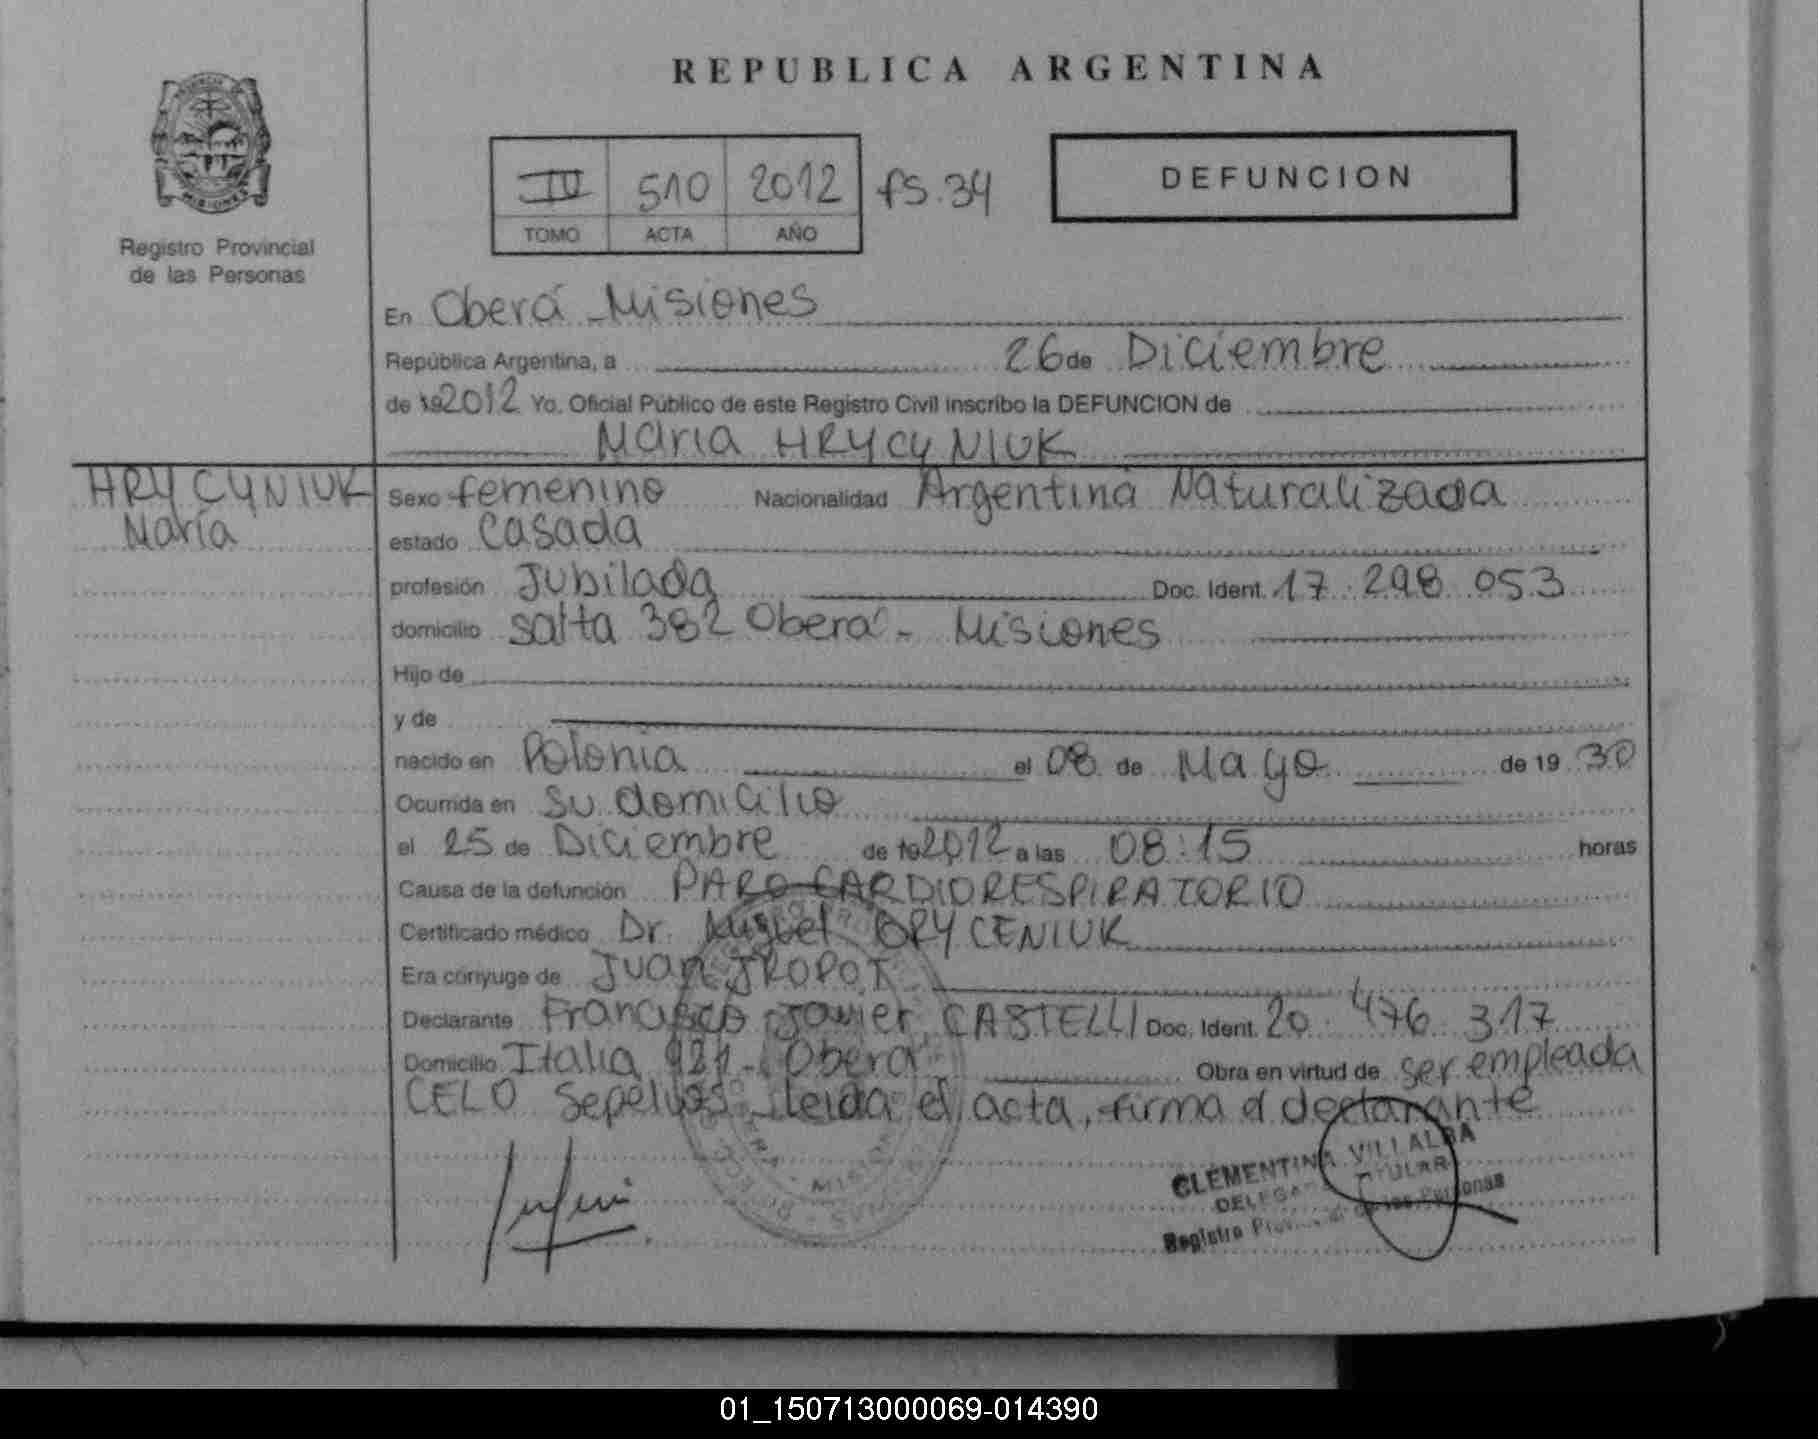 REPUBLICA ARGENTINA
Registro Provincial
de las Personas
IV 510 2012 fs. 34
TOMO ACTA AÑO
DEFUNCION
En Oberá - Misiones
República Argentina, a 26 de Diciembre
de 192012 Yo. Oficial Público de este Registro Civil inscribo la DEFUNCION de
Maria HRYCYNIUK
HRYCYNIUK
María
Sexo femenino Nacionalidad Argentina Naturalizada
estado Casada
profesión Jubilada Doc. Ident. 17.298.053
domicilio Salta 382 Oberá - Misiones
Hijo de
y de
nacido en Polonia el 08 de Mayo de 19 30
Ocurrida en su domicilio
el 25 de Diciembre de 192012 a las 08:15 horas
Causa de la defunción PARO CARDIORESPIRATORIO
Certificado médico Dr. Miguel ORYCENIUK
Era cónyuge de Juan TROPOT
Declarante Francisco Javier CASTELLI Doc. Ident. 20.476.317
Domicilio Italia 921 - Oberá Obra en virtud de ser empleada
CELO Sepelios - leida el acta, firma el declarante
CLEMENTINA VILLALBA
TITULAR
Registro de las Personas
01_150713000069-014390